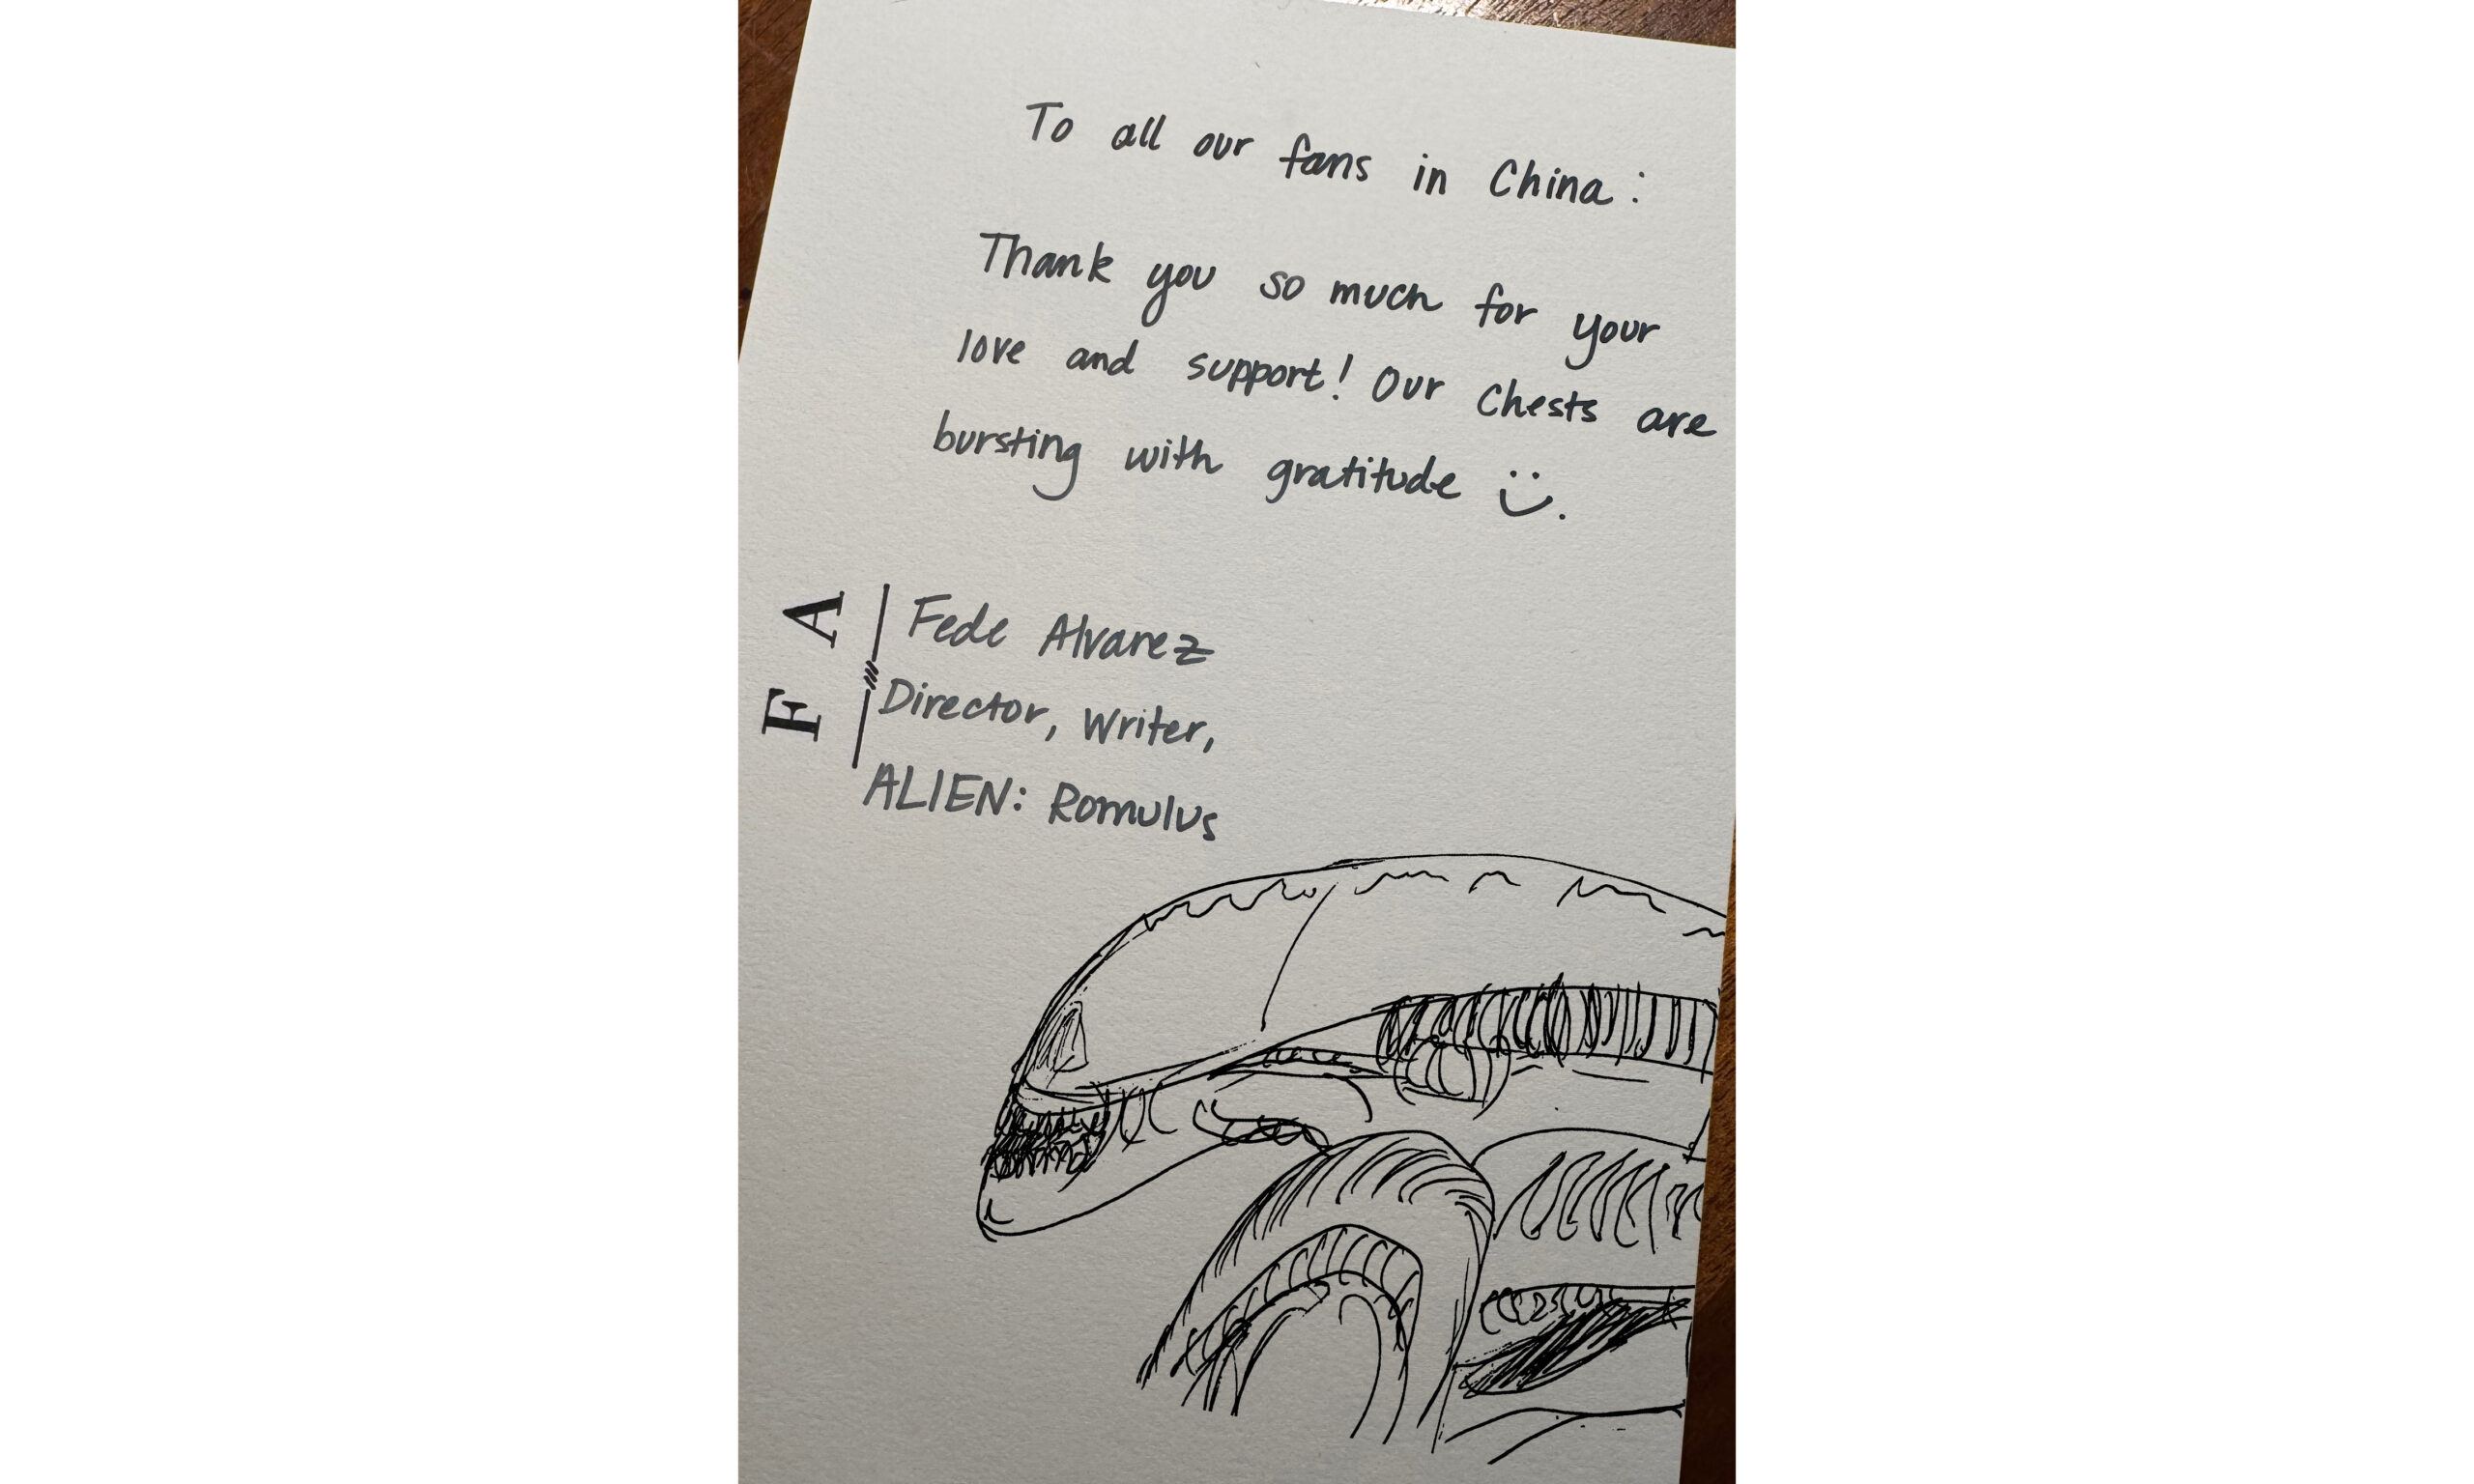 To all our fans in China:
Thank you so much for your
love and support! Our chests are
bursting with gratitude :).
F A
Fede Alvarez
Director, Writer,
ALIEN: Romulus